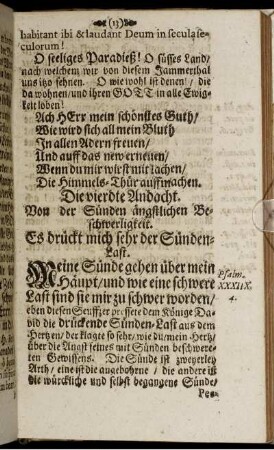 (13)
habitant ibi & laudant Deum in secula se-
culorum!
O seeliges Paradieß! O süsses Land/
nach welchem wir von diesem Jammerthal
uns itzo sehnen. O wie wohl ist denen/ die
da wohnen/ und ihren GOTT in alle Ewig-
keit loben!
Ach HErr mein schönstes Guth/
Wie wird sich all mein Bluth
In allen Adern freuen/
Und auff das new erneuen/
Wenn du mir wirst mit lachen/
Die Himmels-Thür auffmachen.
Die vierdte Andacht.
Von der Sünden ängstlichen Be-
schwerligkeit.
Es drückt mich sehr der Sünden-
Last.
Meine Sünde gehen über mein
Häupt/ und wie eine schwere
Last sind sie mir zu schwer worden/
eben diesen Seuffzer pressete dem Könige Da-
vid die drückende Sünden-Last aus dem
Hertzen/ der klagte so sehr/ wie du/ mein Hertz/
über die Angst seines mit Sünden beschwere-
ten Gewissens. Die Sünde ist zweyerley
Arth/ eine ist die angebohrne/ die andere ist
die würckliche und selbst begangene Sünde/
Psalm.
XXXIIX.
4.